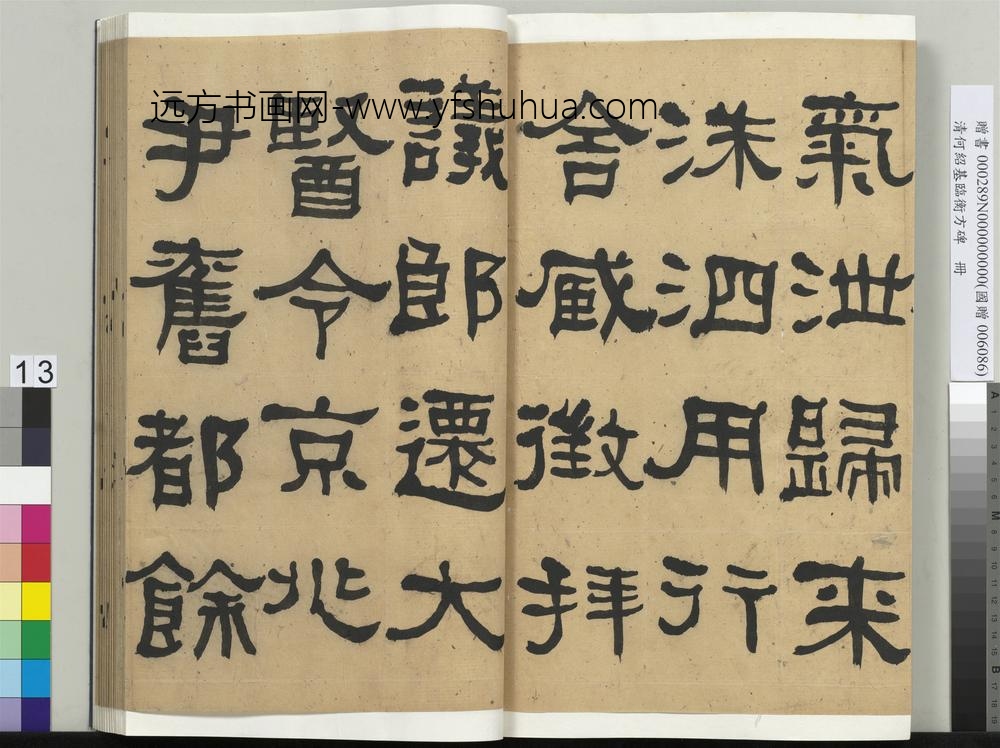 氣泄歸來
洙泗用行
舍臧徵拜
議郎遷大
醫令京兆
尹舊都餘
远方书画网-www.yfshuhua.com
贈書 000289N000000000(國贈 006086)
清何紹基臨衡方碑 冊
13
A 1 2 3 4 5 6 M 8 9 10 11 12 13 14 15 B 17 18 19